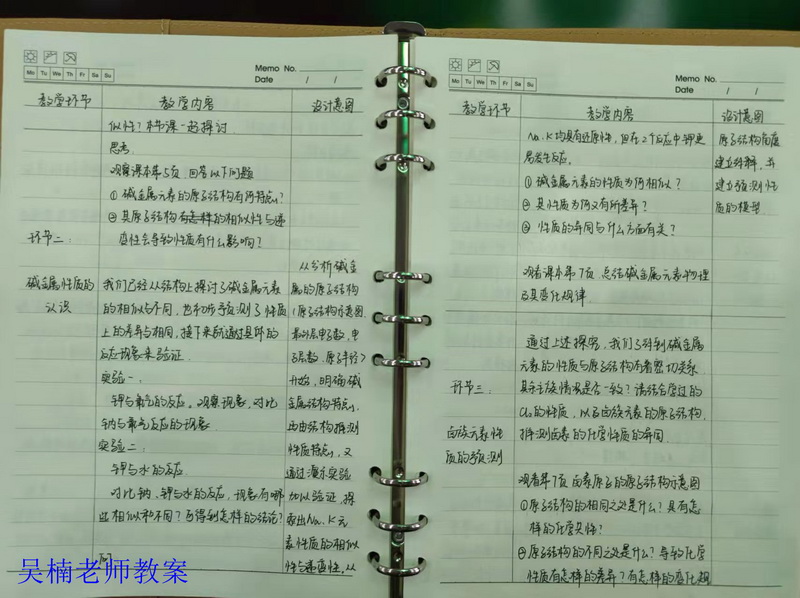 Memo No.
Mo Tu We Th Fr Sa Su
Date / /
教学环节 教学内容 设计意图
似性?本节课一起探讨.
思考.
观察课本第5页,回答以下问题
① 碱金属元素的原子结构有何特点?
② 其原子结构有怎样的相似性与递
变性会导致性质有什么影响?
环节二:
碱金属性质的
认识
我们已经从结构上探讨了碱金属元素
的相似与不同,也初步预测了性质
上的差异与相同,接下来就通过具体的
反应现象来验证.
实验一:
钾与氧气的反应。观察现象,对比
钠与氧气反应的现象
实验二:
钾与水的反应
对比钠、钾与水的反应,现象有哪
些相似和不同?可得到怎样的结论?
从分析碱金
属的原子结构
(原子结构示意图,
最外层电子数,电
子层数,原子半径)
开始,明确碱
金属结构特点,
再由结构推测
性质特点,又
通过演示实验
加以验证,探
索出Na、K元
素性质的相似
性与递变性,从
吴楠老师教案
Memo No.
Mo Tu We Th Fr Sa Su
Date / /
教学环节 教学内容 设计意图
Na、K均具有还原性,但在2个反应中钾更
易发生反应。
① 碱金属元素的性质为何相似?
② 其性质为何又有所差异?
③ 性质的异同与什么方面有关?
观看课本第7页,总结碱金属元素物理
及其变化规律
原子结构角度
建立理解,并
建立预测性
质的模型.
环节三:
卤族元素性
质的预测
通过上述探究,我们了解到碱金属
元素的性质与原子结构有着密切关系.
其余主族情况是否一致?请结合学过的
Cl₂的性质,以及卤族元素的原子结构,
推测卤素的化学性质的异同.
观看第7页卤素原子的原子结构示意图
① 原子结构的相同之处是什么?具有怎
样的化学共性?
② 原子结构的不同之处是什么?导致化学
性质有怎样的差异?有怎样的变化趋